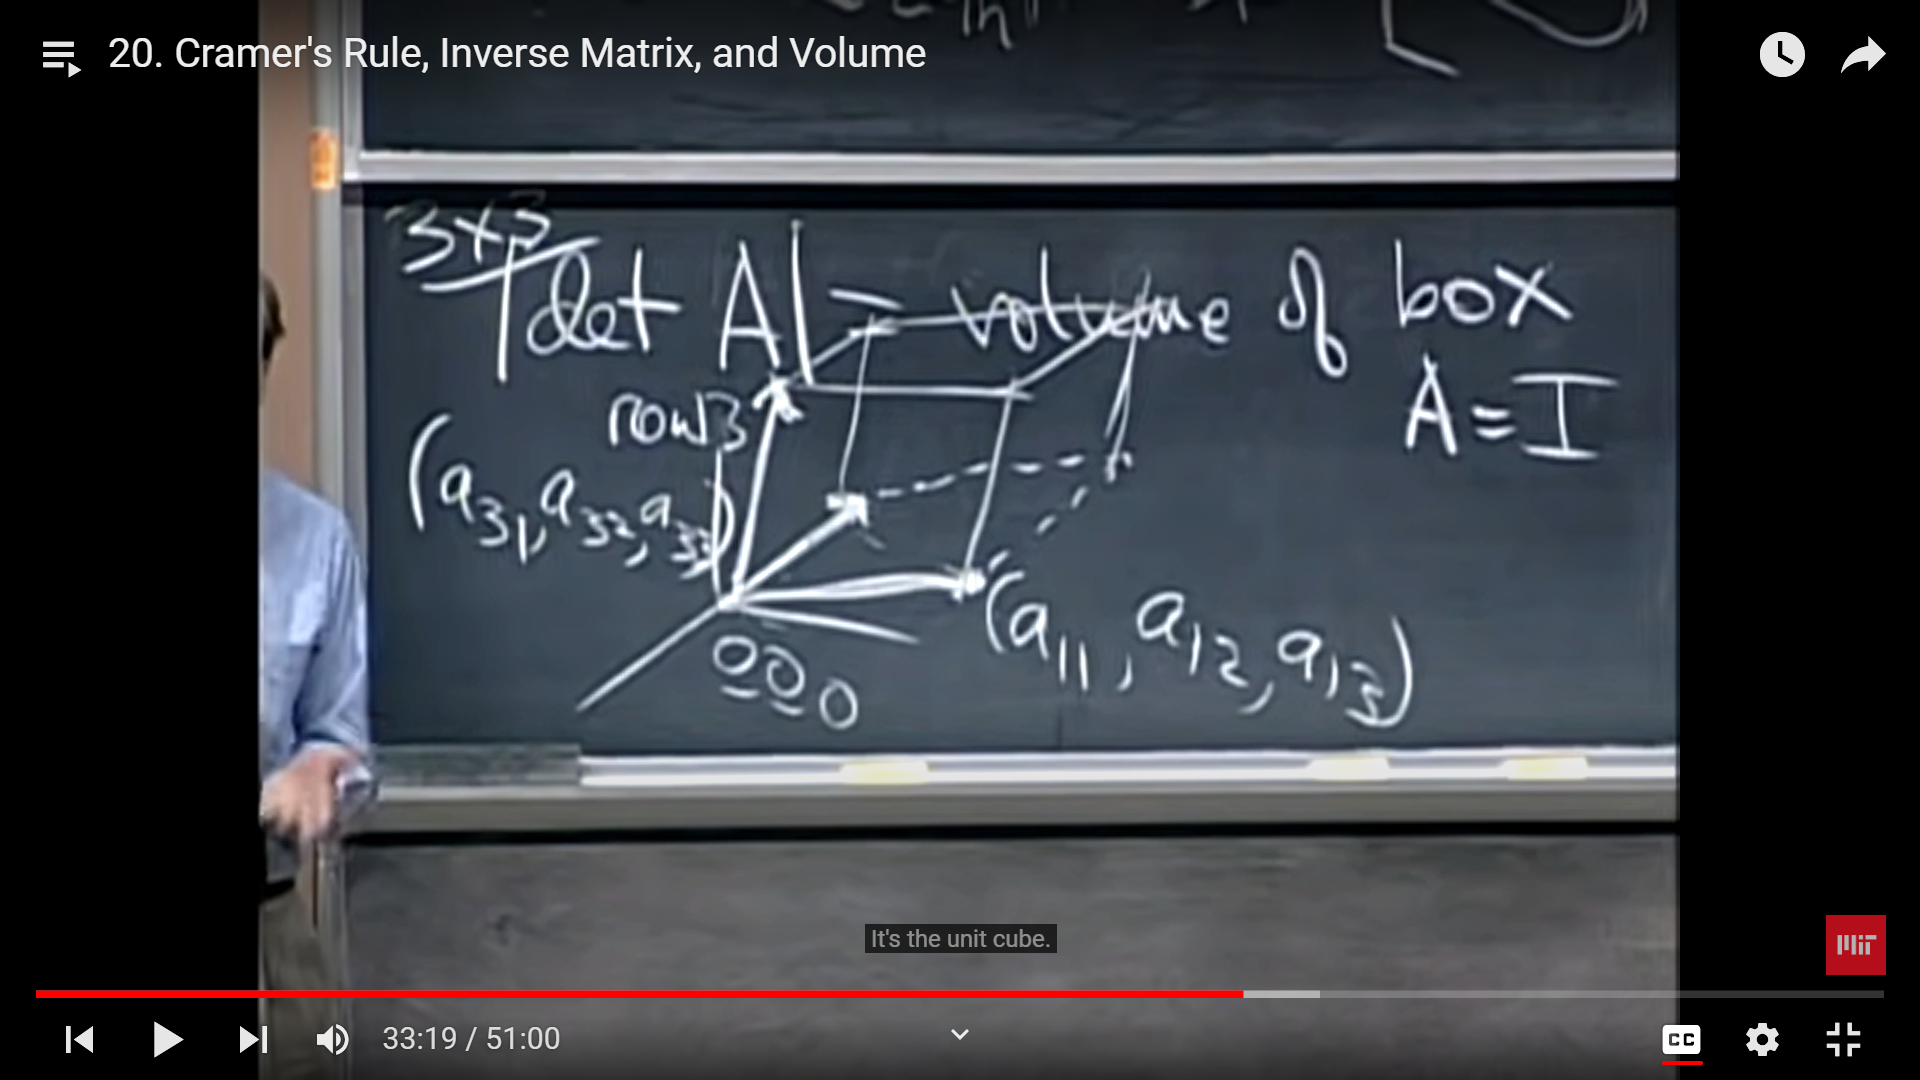 20. Cramer's Rule, Inverse Matrix, and Volume
3x3
|det A| = volume of box
A = I
row 3
(a31, a32, a33)
(a11, a12, a13)
000
It's the unit cube.
MIT
33:19 / 51:00
CC